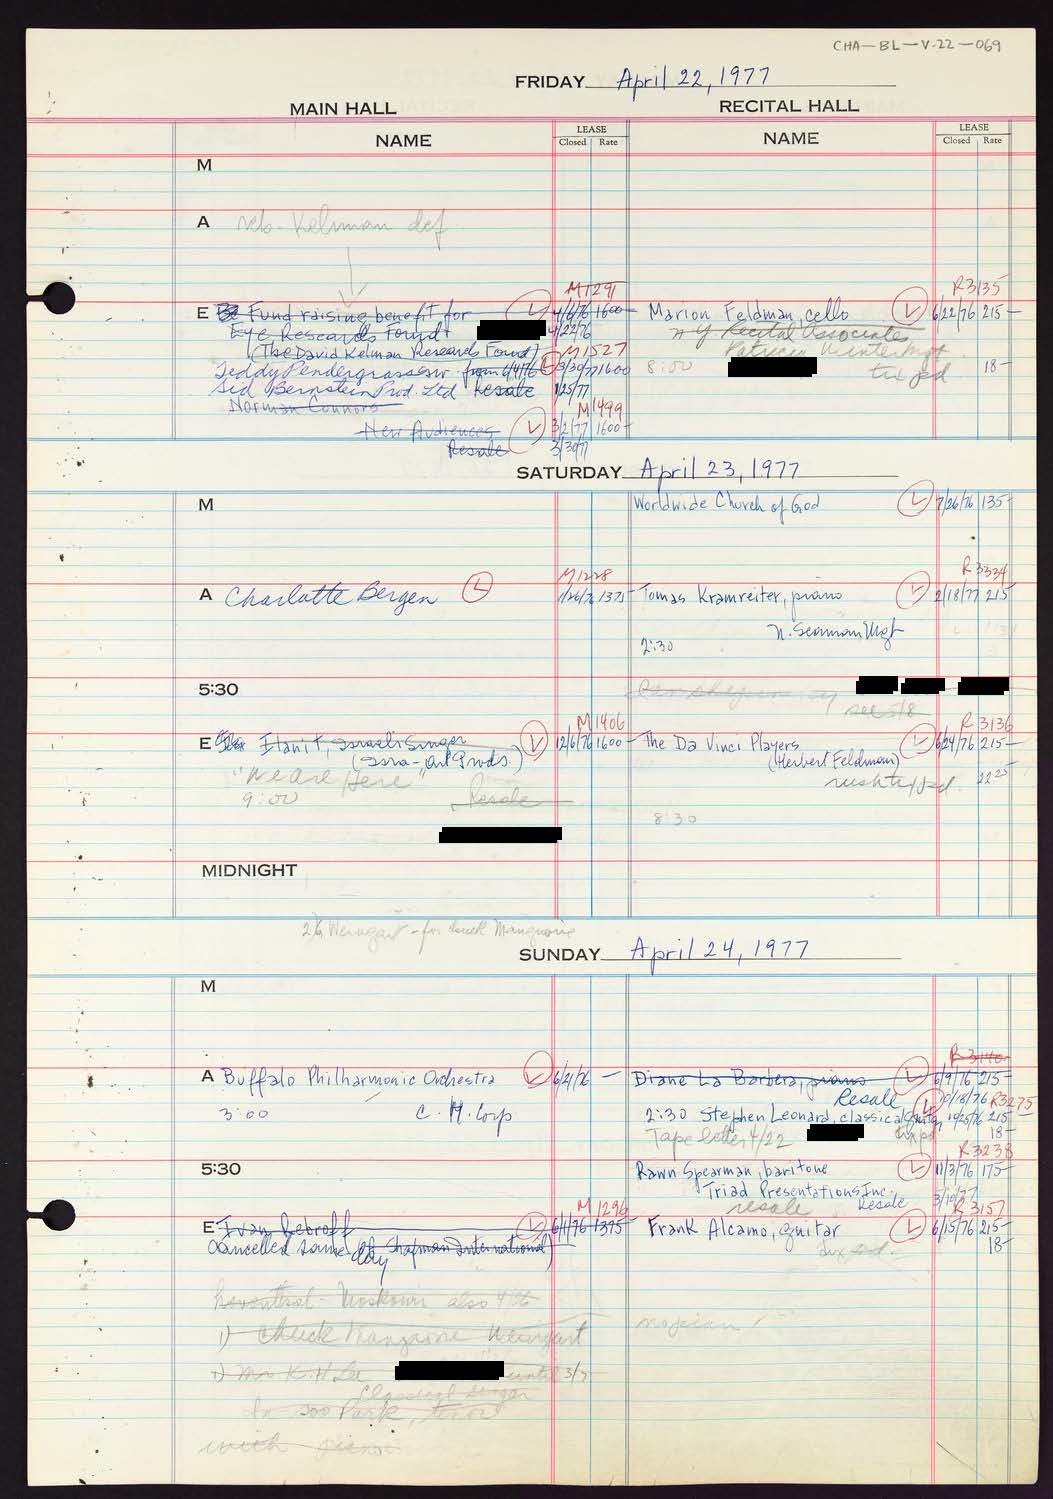 CHA-BL-V-22-069
FRIDAY April 22, 1977
MAIN HALL RECITAL HALL
NAME LEASE Closed Rate NAME LEASE Closed Rate
M
A Kelman def
M1291 R3135
E Fund raising benefit for L 4/6/76 1600- Marion Feldman, cello L 6/22/76 215-
Eye Research Found. 4/22/76 N Y Recital Associates
(The David Kelman Research Found) M1527 Patricia Winter Mgt
Teddy Pendergrass from 4/4/76 L 3/30/77 1600 8:00 tix pd 18-
Sid Bernstein Prod. Ltd Resale 1/25/77
Norman Connors M1499
New Audiences L 3/2/77 1600-
Resale 3/30/77
SATURDAY April 23, 1977
M Worldwide Church of God L 7/26/76 135-
M1228 R3334
A Charlotte Bergen L 1/26/76 1375- Tomas Kramreiter, piano L 2/18/77 215
N. Seaman Mgt
2:30
5:30
see 5/8
M1406 R3136
E Ilanit, Israeli Singer L 12/6/76 1600- The Da Vinci Players L 6/24/76 215-
(Isra-Art Prods.) (Herbert Feldman)
"We Are Here" rush tix pd. 22 25
9:00 Resale
8 30
MIDNIGHT
2/9 Weingart - for Chuck Mangione
SUNDAY April 24, 1977
M
R3140
A Buffalo Philharmonic Orchestra L 6/2/76 - Diane La Barbera, piano L 6/9/76 215-
3:00 C. H. Corp Resale L 10/18/76 R3275
2:30 Stephen Leonard, classical guitar 10/25/76 215-
Tape letter 4/22 tix pd 18-
R3238
5:30 Rawn Spearman, baritone L 11/3/76 175-
Triad Presentations Inc. 3/10/77
resale Resale
M1296 R3157
E Ivan Rebroff L 6/1/76 1375- Frank Alcamo, guitar L 6/15/76 215-
Cancelled same day (Shapman International) tix pd. 18-
Moskowi also 4/26
1) Chuck Mangione Weingart
2) Mr K. H. Lee until 3/7
Classical Singer
In soo Park, tenor
with piano